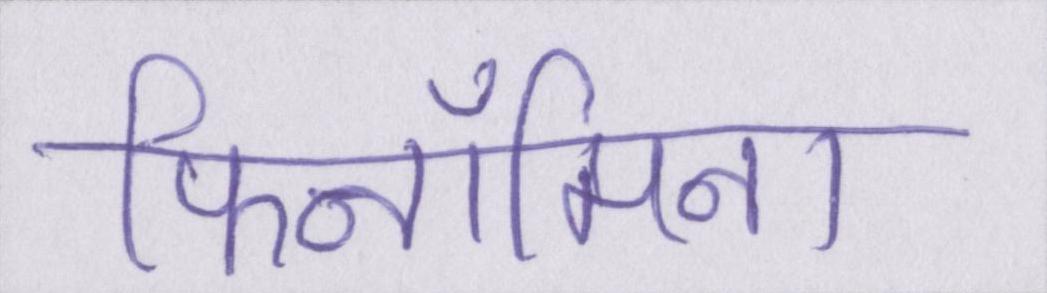 फिनॉमिना